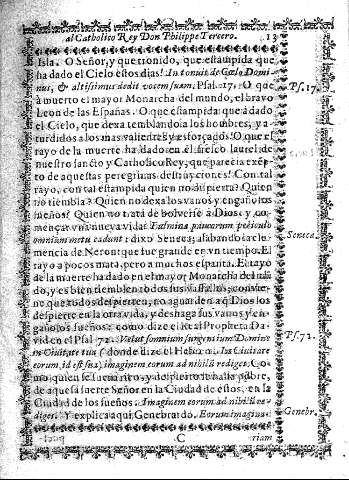 al Catholico Rey Don Philippe Tercero. 13
Isla. O Señor, y que tronido, que estampida que
ha dado el Cielo estos dias! In tonuit de Cœlo Domi-
nus, & altissimus dedit vocem suam. Psal. 17. O que
à muerto el mayor Monarcha del mundo, el bravo
Leon de las Españas. O que estampida que à dado
el Cielo, que dexa temblando a los hombres, y a-
turdidos a los mas valientes y esforçados! O que el
rayo de la muerte ha dado en el fresco laurel de
nuestro sancto y Catholico Rey, que parecia exẽp-
to de aquestas peregrinas destruyciones! Con tal
rayo, con tal estampida quien no dispierta? Quien
no tiembla? Quien no dexa los vanos y engañosos
sueños? Quien no trata de bolverse à Dios, y co-
mençar vna nueva vida? Fulmina paucorum periculo
omnium metu cadunt: dixo Seneca, alabando la cle-
mencia de Neron: que fue grande en vn tiempo. El
rayo a pocos mata, pero a muchos espanta. El rayo
de la muerte ha dado en el mayor Monarcha del mũ-
do, y es bien tiemblen todos sus vassallos, convie-
ne que todos despierten, no aguarden a q̃ Dios los
despierte en la otra vida, y deshaga sus vanos y en-
gañosos sueños: como dize el Real Propheta Da-
vid en el Psal. 72. Velut somnium surgentium Domine
in Civitate tua (donde dize el Hebreo. In Civitate
eorum, id est sua) imaginem eorum ad nihilũ rediges. Co-
mo quien se fueña rico, y despierto se halla pobre,
de aquesta suerte Señor en la Ciudad de estos, en la
Ciudad de los sueños. Imaginem eorum ad nihilũ re-
diges. Y explica aqui Genebrardo. Eorum imagina-
C riam
Ps. 17.
Seneca.
Ps. 72.
Genebr.